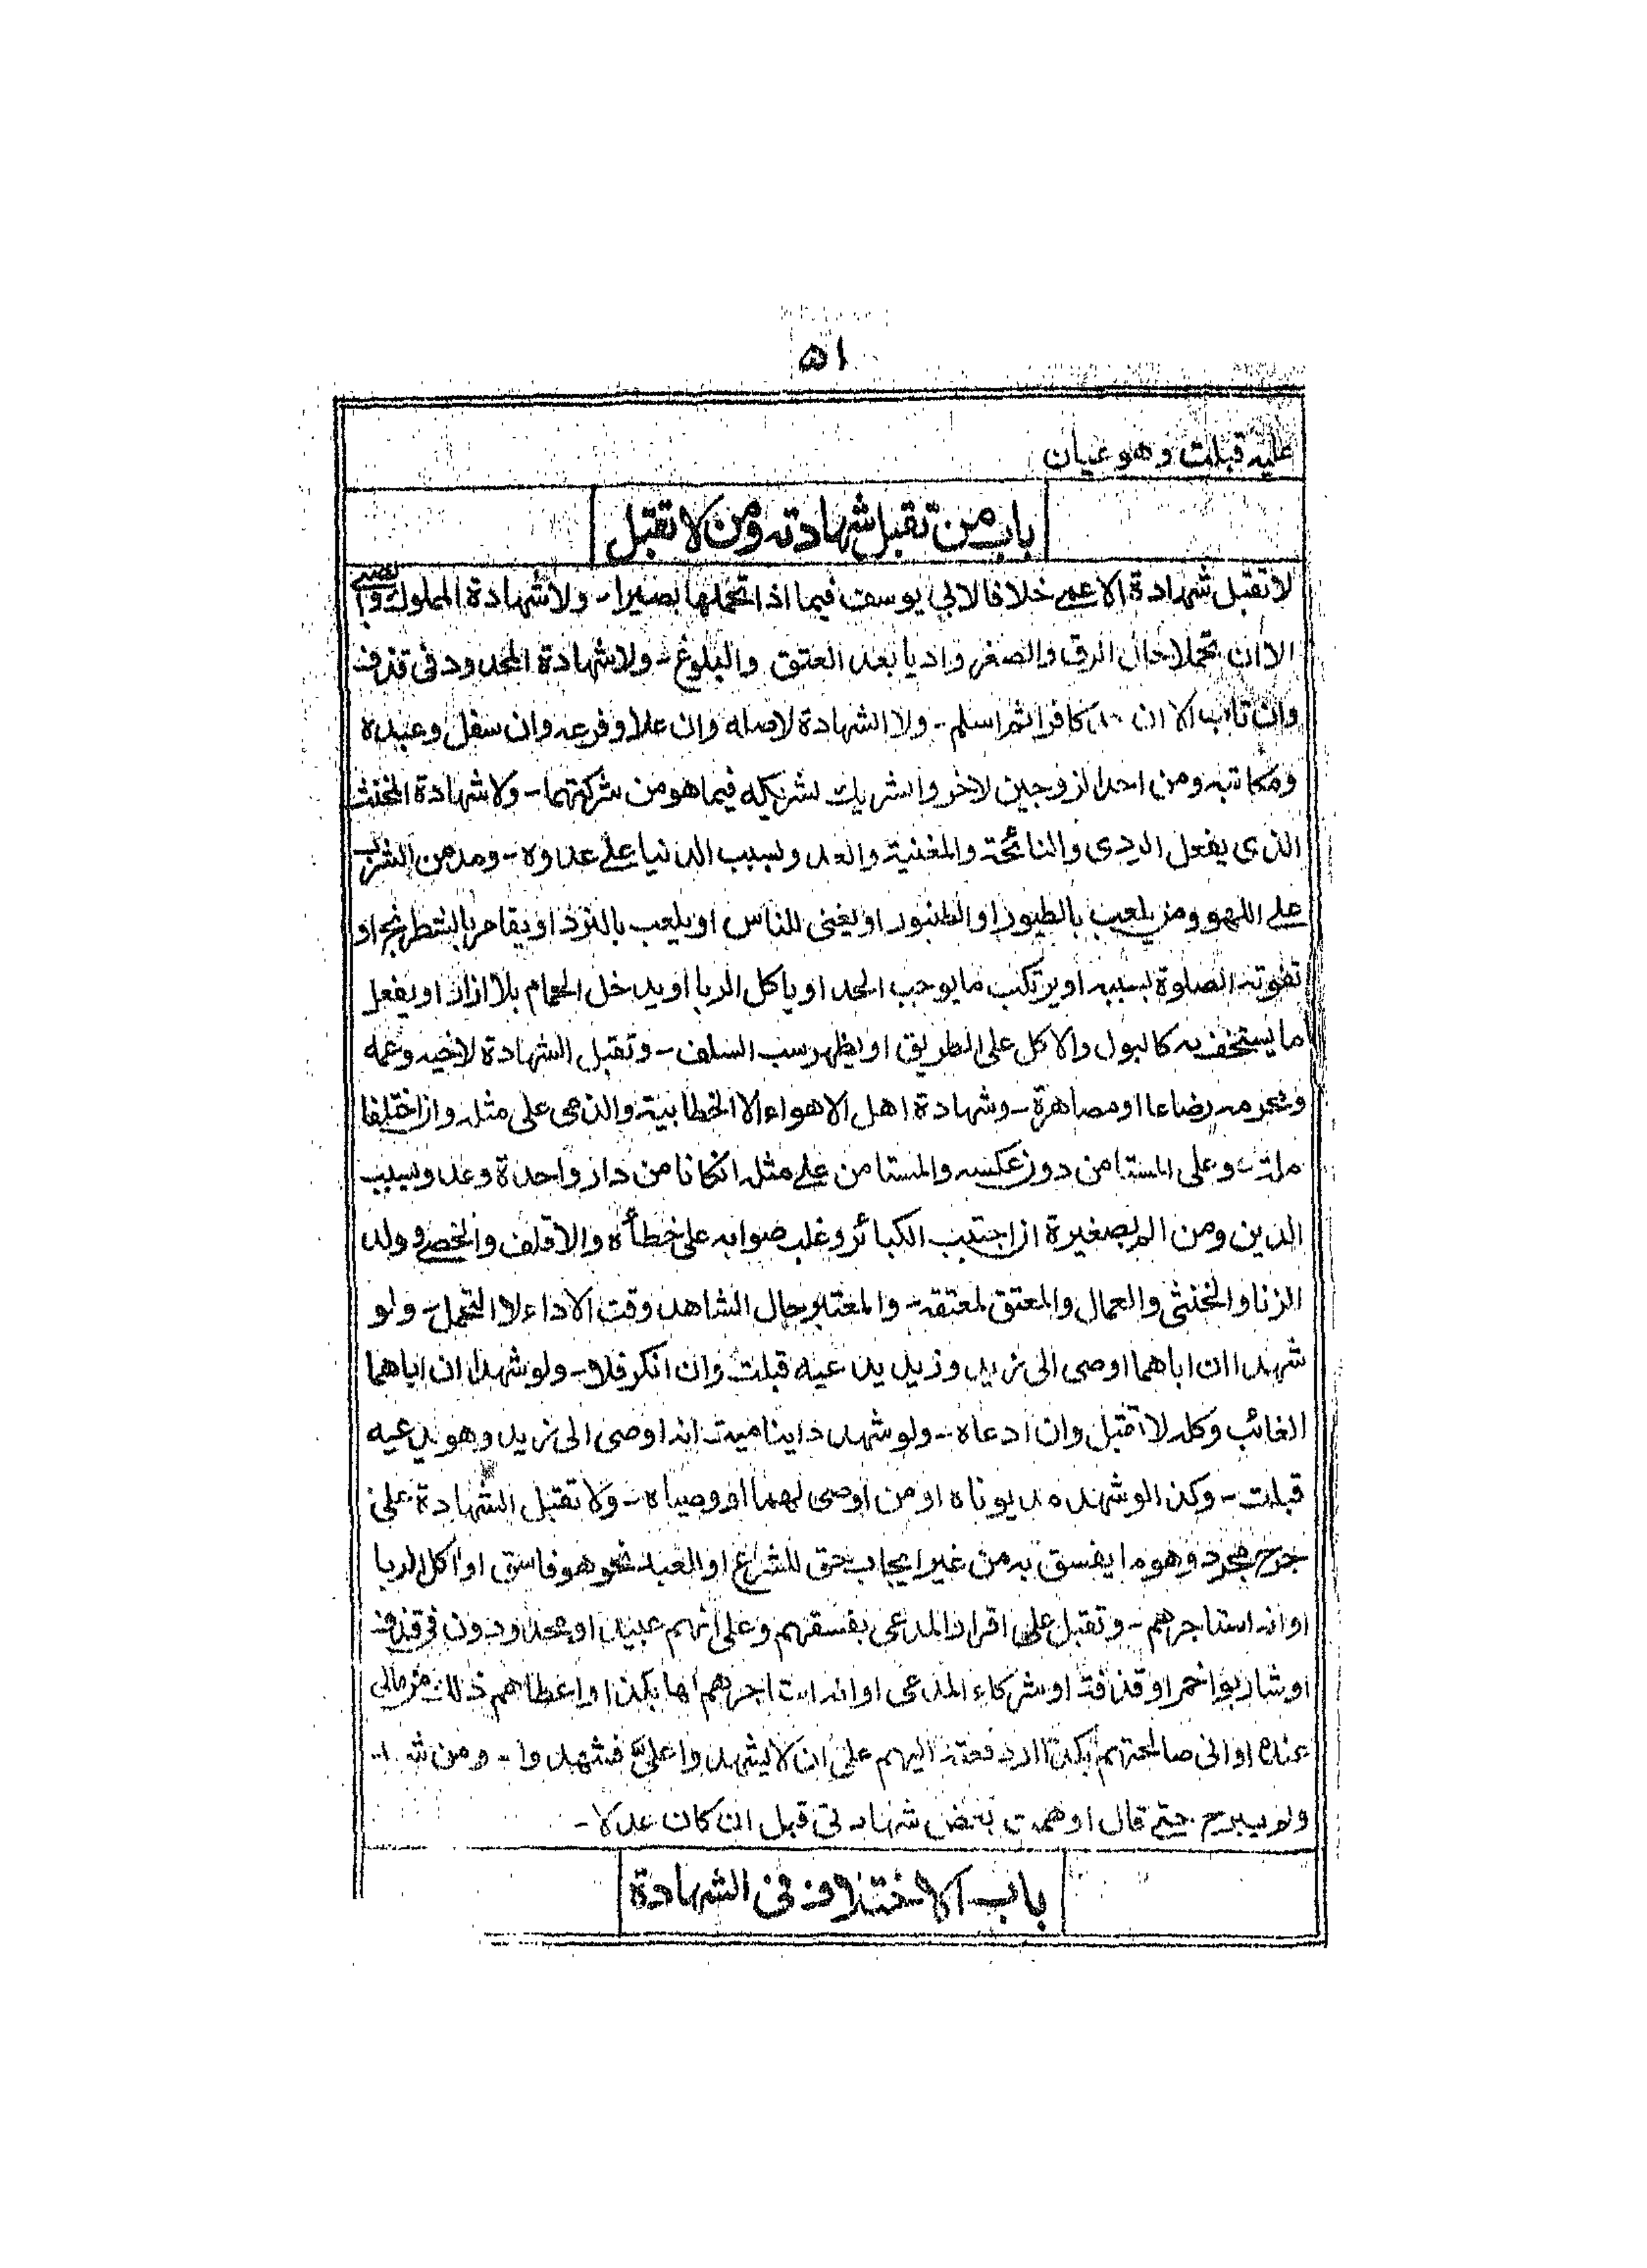 ۵۱
عليه قبلت وهو عيان
باب من تقبل شهادته ومن لا تقبل
لا تقبل شهادة الاعمى خلافا لابي يوسف فيما اذا تحملها بصيرا - ولا شهادة المملوك والصبي
الا ان تحملا حال الرق والصغر واديا بعد العتق والبلوغ - ولا شهادة المحدود في قذف
وان تاب الا ان كافرا ثم اسلم - ولا الشهادة لاصله وان علا وفرعه وان سفل وعبده
ومكاتبه ومن احد الزوجين لاخر والشريك لشريكه فيما هو من شركتهما - ولا شهادة المخنث
الذى يفعل الردى والنائحة والمغنية والعدو بسبب الدنيا على عدوه - ومدمن الشرب
على اللهو ومن يلعب بالطيور او الطنبور او يغنى للناس او يلعب بالنرد او يقامر بالشطرنج او
تفوته الصلوة بسببه او يرتكب ما يوجب الحد او ياكل الربا او يدخل الحمام بلا ازار او يفعل
ما يستخف به كالبول والاكل على الطريق او يظهر سب السلف - وتقبل الشهادة لاخيه وعمه
ومحرمه رضاعا او مصاهرة - وشهادة اهل الاهواء الا الخطابية والذمى على مثله وان اختلفا
ملة وعلى المستامن دون عكسه والمستامن على مثله انكانا من دار واحدة وعدو بسبب
الدين ومن الم بصغيرة ان اجتنب الكبائر وغلب صوابه على خطأه والاقلف والخصى وولد
الزنا والخنثى والعمال والمعتق لمعتقه - والمعتبر حال الشاهد وقت الاداء لا التحمل - ولو
شهدا ان اباهما اوصى الى زيد وزيد يدعيه قبلت وان انكر فلا - ولو شهدا ان اباهما
الغائب وكله لا تقبل وان ادعاه - ولو شهد داينا ميت انه اوصى الى زيد وهو يدعيه
قبلت - وكذا لو شهد مديوناه او من اوصى لهما او وصياه - ولا تقبل الشهادة على
جرح مجرد وهو ما يفسق به من غير ايجاب حق للشرع او العبد نحو هو فاسق او اكل الربا
او انه استاجرهم - وتقبل على اقرار المدعى بفسقهم وعلى انهم عبيد او محدودون في قذف
او شاربوا خمر او قذفة او شركاء المدعى او انه استاجرهم لها بكذا او اعطاهم ذلك من مالى
عنده او انى صالحتهم بكذا او دفعته اليهم على ان لا يشهدوا على فشهدوا - ومن
ولم يبرح حتى قال اوهمت بعض شهادتى قبل ان كان عدلا -
باب الاختلاف في الشهادة